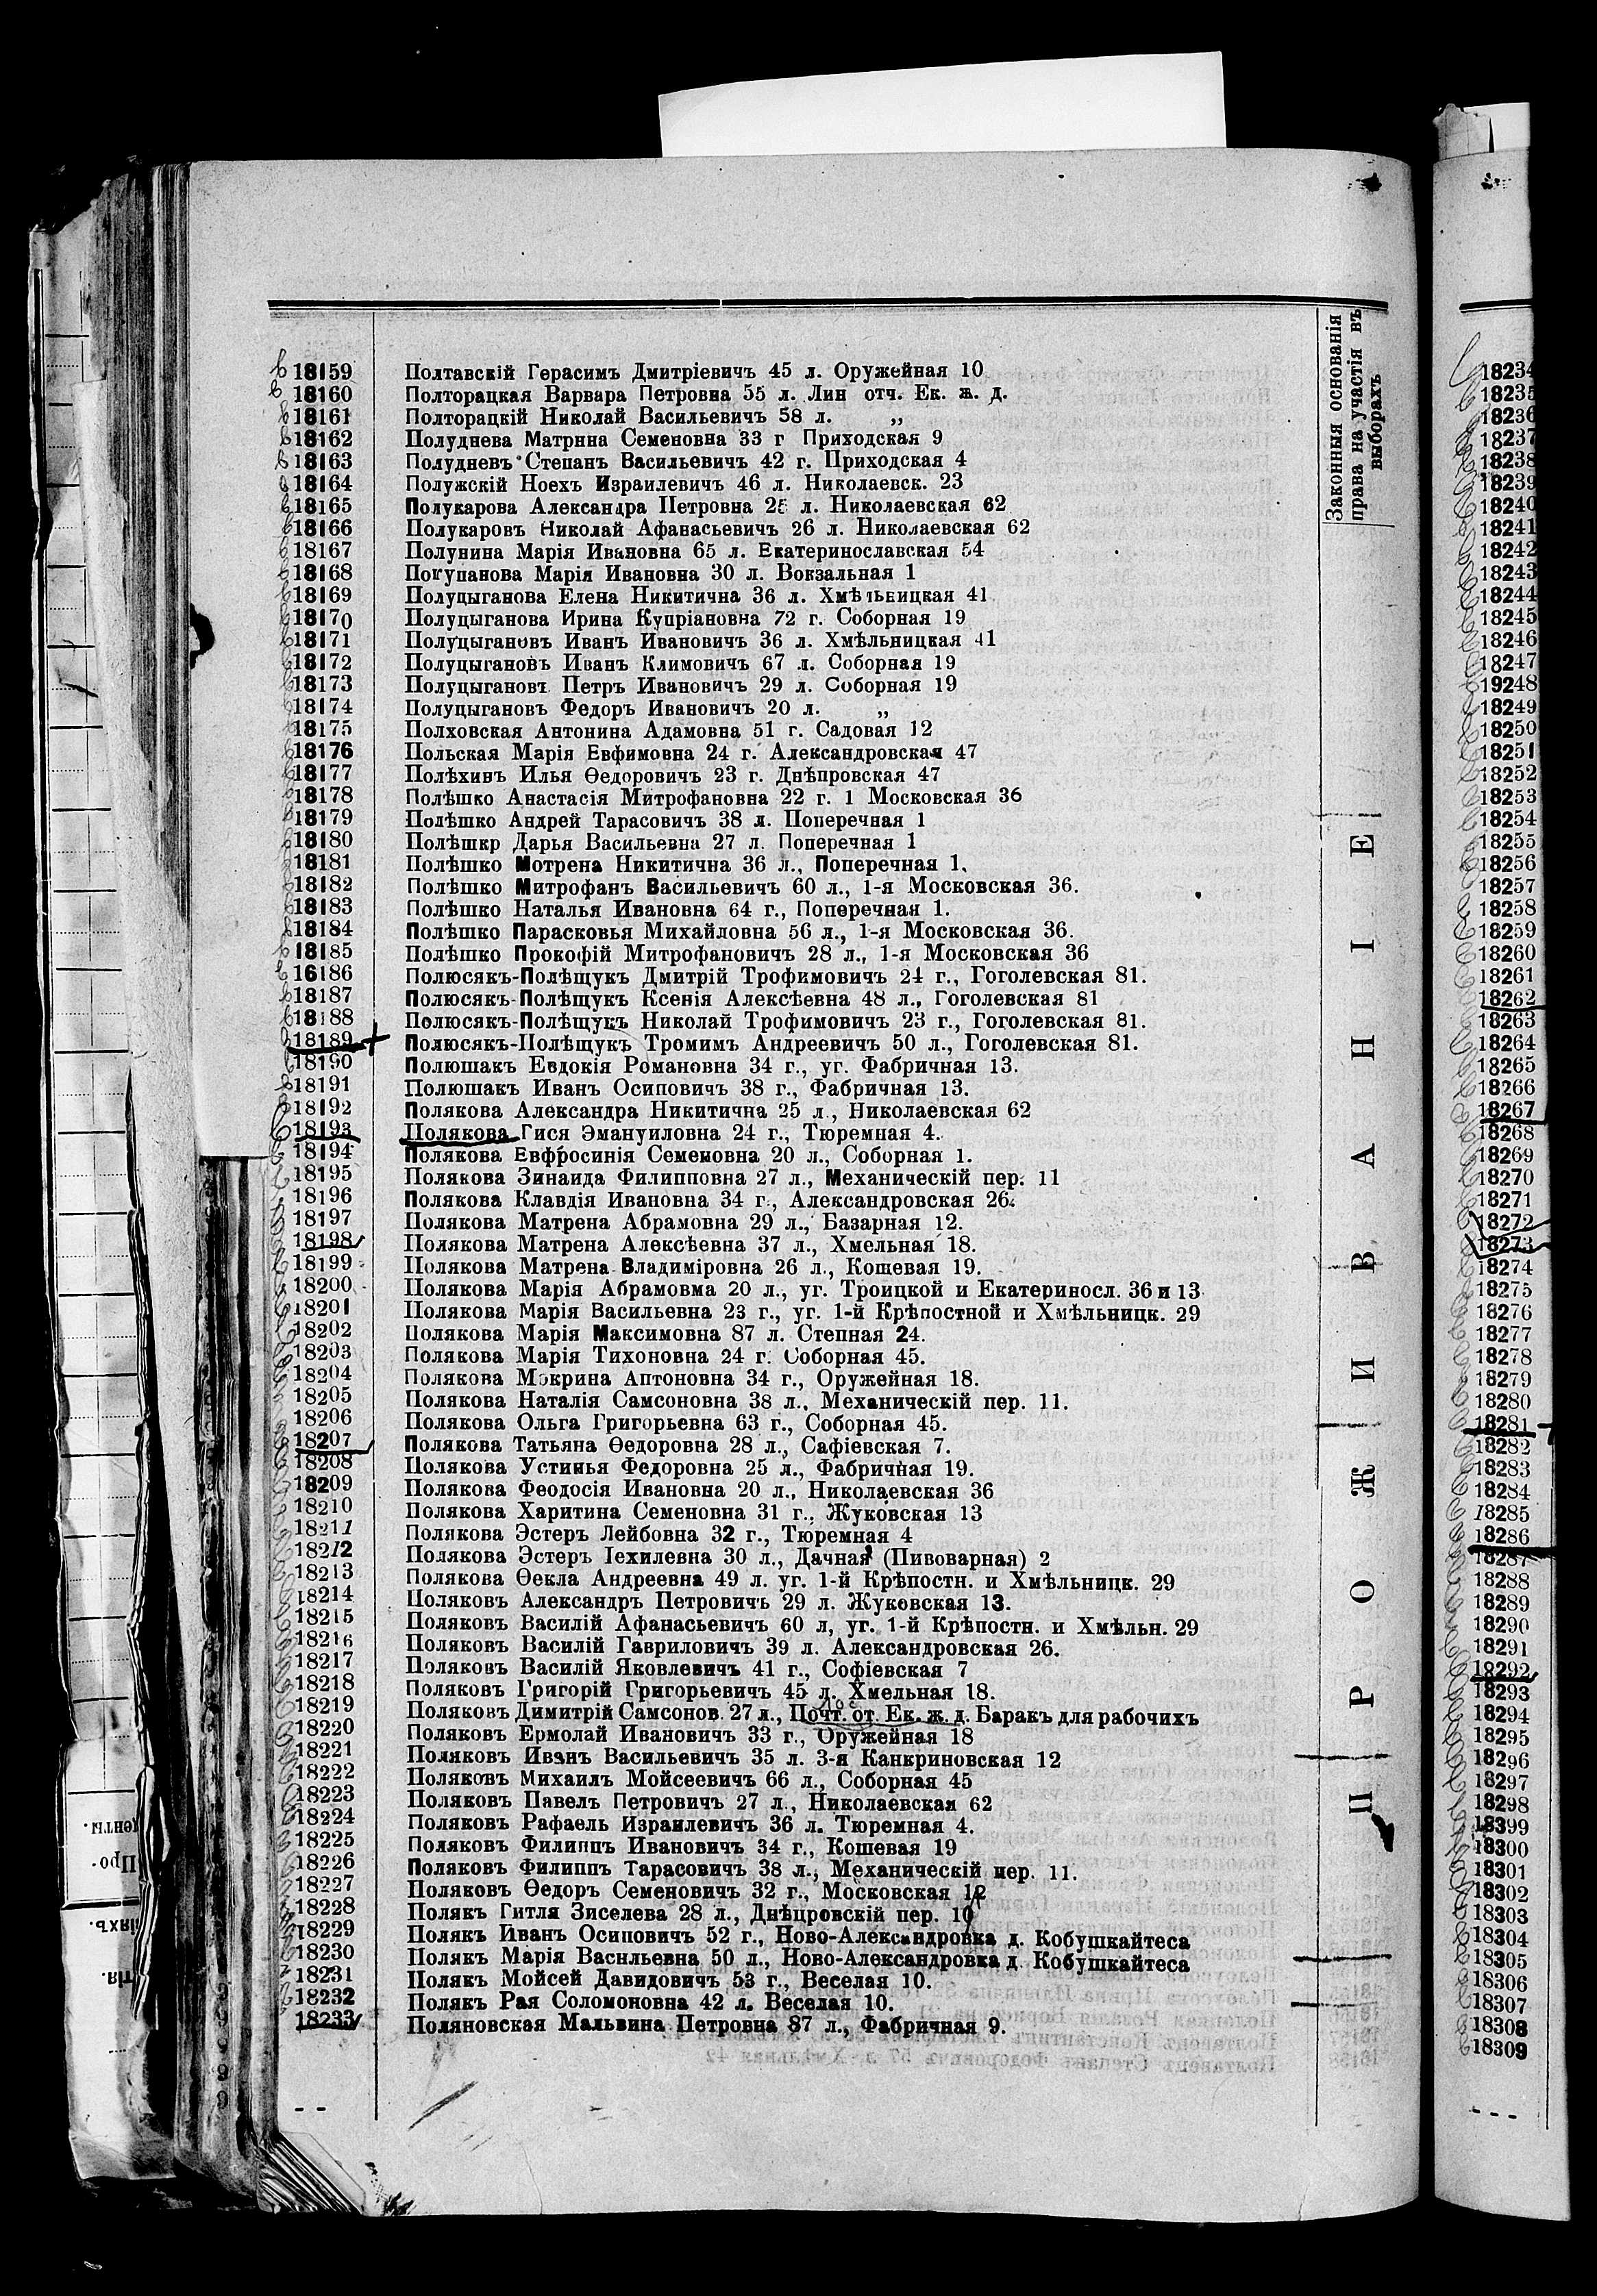 Законныя основанія
права на участія въ
выборахъ
ПРОЖИВАНІЕ
18159 Полтавскій Герасимъ Дмитріевичъ 45 л. Оружейная 10
18160 Полторацкая Варвара Петровна 55 л. Лин отч. Ек. ж. д.
18161 Полторацкій Николай Васильевичъ 58 л. „
18162 Полуднева Матрина Семеновна 33 г Приходская 9
18163 Полудневъ Степанъ Васильевичъ 42 г. Приходская 4
18164 Полужскій Ноехъ Израилевичъ 46 л. Николаевск. 23
18165 Полукарова Александра Петровна 25 л. Николаевская 62
18166 Полукаровъ Николай Афанасьевичъ 26 л. Николаевская 62
18167 Полунина Марія Ивановна 65 л. Екатеринославская 54
18168 Погупанова Марія Ивановна 30 л. Вокзальная 1
18169 Полуцыганова Елена Никитична 36 л. Хмѣльницкая 41
18170 Полуцыганова Ирина Купріановна 72 г. Соборная 19
18171 Полуцыгановъ Иванъ Ивановичъ 36 л. Хмѣльницкая 41
18172 Полуцыгановъ Иванъ Климовичъ 67 л. Соборная 19
18173 Полуцыгановъ Петръ Ивановичъ 29 л. Соборная 19
18174 Полуцыгановъ Федоръ Ивановичъ 20 л. „
18175 Полховская Антонина Адамовна 51 г. Садовая 12
18176 Польская Марія Евфимовна 24 г. Александровская 47
18177 Полѣхинъ Илья Ѳедоровичъ 23 г. Днѣпровская 47
18178 Полѣшко Анастасія Митрофановна 22 г. 1 Московская 36
18179 Полѣшко Андрей Тарасовичъ 38 л. Поперечная 1
18180 Полѣшкр Дарья Васильевна 27 л. Поперечная 1
18181 Полѣшко Мотрена Никитична 36 л., Поперечная 1.
18182 Полѣшко Митрофанъ Васильевичъ 60 л., 1-я Московская 36.
18183 Полѣшко Наталья Ивановна 64 г., Поперечная 1.
18184 Полѣшко Парасковья Михайловна 56 л., 1-я Московская 36.
18185 Полѣшко Прокофій Митрофановичъ 28 л., 1-я Московская 36
16186 Полюсякъ-Полѣщукъ Дмитрій Трофимовичъ 24 г., Гоголевская 81.
18187 Полюсякъ-Полѣщукъ Ксенія Алексѣевна 48 л., Гоголевская 81
18188 Полюсякъ-Полѣщукъ Николай Трофимовичъ 23 г., Гоголевская 81.
18189 Полюсякъ-Полѣщукъ Тромимъ Андреевичъ 50 л., Гоголевская 81.
18190 Полюшакъ Евдокія Романовна 34 г., уг. Фабричная 13.
18191 Полюшакъ Иванъ Осиповичъ 38 г., Фабричная 13.
18192 Полякова Александра Никитична 25 л., Николаевская 62
18193 Полякова Гися Эмануиловна 24 г., Тюремная 4.
18194 Полякова Евфросинія Семеновна 20 л., Соборная 1.
18195 Полякова Зинаида Филипповна 27 л., Механическій пер. 11
18196 Полякова Клавдія Ивановна 34 г., Александровская 26.
18197 Полякова Матрена Абрамовна 29 л., Базарная 12.
18198 Полякова Матрена Алексѣевна 37 л., Хмельная 18.
18199 Полякова Матрена Владиміровна 26 л., Кошевая 19.
18200 Полякова Марія Абрамовма 20 л., уг. Троицкой и Екатериносл. 36 и 13
18201 Полякова Марія Васильевна 23 г., уг. 1-й Крѣпостной и Хмѣльницк. 29
18202 Полякова Марія Максимовна 87 л. Степная 24.
18203 Полякова Марія Тихоновна 24 г. Соборная 45.
18204 Полякова Мокрина Аптоновна 34 г., Оружейная 18.
18205 Полякова Наталія Самсоновна 38 л., Механическій пер. 11.
18206 Полякова Ольга Григорьевна 63 г., Соборная 45.
18207 Полякова Татьяна Ѳедоровна 28 л., Сафіевская 7.
18208 Полякова Устинья Федоровна 25 л., Фабричная 19.
18209 Полякова Феодосія Ивановна 20 л., Николаевская 36
18210 Полякова Харитина Семеновна 31 г., Жуковская 13
18211 Полякова Эстеръ Лейбовна 32 г., Тюремная 4
18212 Полякова Эстеръ Іехилевна 30 л., Дачная (Пивоварная) 2
18213 Полякова Ѳекла Андреевна 49 л. уг. 1-й Крѣпостн. и Хмѣльницк. 29
18214 Поляковъ Александръ Петровичъ 29 л. Жуковская 13.
18215 Поляковъ Василій Афанасьевичъ 60 л, уг. 1-й Крѣпостн. и Хмѣльн. 29
18216 Поляковъ Василій Гавриловичъ 39 л. Александровская 26.
18217 Поляковъ Василій Яковлевичъ 41 г., Софіевская 7
18218 Поляковъ Григорій Григорьевичъ 45 л. Хмельная 18.
18219 Поляковъ Димитрій Самсонов. 27 л., Почт. от. Ек. ж. д. Баракъ для рабочихъ
18220 Поляковъ Ермолай Ивановичъ 33 г., Оружейная 18
18221 Поляковъ Иванъ Васильевичъ 35 л. 3-я Канкриновская 12
18222 Поляковъ Михаилъ Мойсеевичъ 66 л., Соборная 45
18223 Поляковъ Павелъ Петровичъ 27 л., Николаевская 62
18224 Поляковъ Рафаель Израилевичъ 36 л. Тюремная 4.
18225 Поляковъ Филиппъ Ивановичъ 34 г., Кошевая 19
18226 Поляковъ Филиппъ Тарасовичъ 38 л., Механическій пер. 11.
18227 Поляковъ Ѳедоръ Семеновичъ 32 г., Московская 12
18228 Полякъ Гитля Зиселева 28 л., Днѣпровскій пер. 10
18229 Полякъ Иванъ Осиповичъ 52 г., Ново-Александровка д. Кобушкайтеса
18230 Полякъ Марія Васильевна 50 л., Ново-Александровка д. Кобушкайтеса
18231 Полякъ Мойсей Давидовичъ 53 г., Веселая 10.
18232 Полякъ Рая Соломоновна 42 л. Веселая 10.
18233 Поляновская Мальвина Петровна 87 л., Фабричная 9.
18234
18235
18236
18237
18238
18239
18240
18241
18242
18243
18244
18245
18246
18247
19248
18249
18250
18251
18252
18253
18254
18255
18256
18257
18258
18259
18260
18261
18262
18263
18264
18265
18266
18267
18268
18269
18270
18271
18272
18273
18274
18275
18276
18277
18278
18279
18280
18281
18282
18283
18284
18285
18286
18287
18288
18289
18290
18291
18292
18293
18294
18295
18296
18297
18298
18399
18300
18301
18302
18303
18304
18305
18306
18307
18308
18309